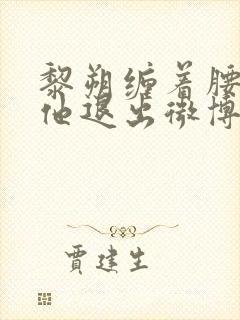 黎朔缠着腰
他退出微博
贾建生